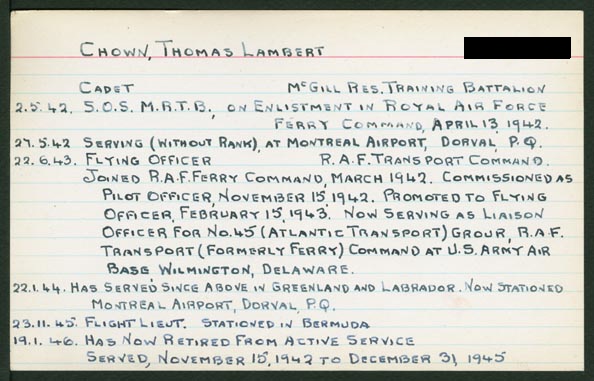 CHOWN, THOMAS LAMBERT
CADET McGILL RES. TRAINING BATTALION
2.5.42. S.O.S. M.R.T.B., ON ENLISTMENT IN ROYAL AIR FORCE
FERRY COMMAND, APRIL 13, 1942.
27.5.42 SERVING (WITHOUT RANK), AT MONTREAL AIRPORT, DORVAL, P.Q.
22.6.43. FLYING OFFICER R.A.F. TRANSPORT COMMAND.
JOINED R.A.F. FERRY COMMAND, MARCH 1942. COMMISSIONED AS
PILOT OFFICER, NOVEMBER 15, 1942. PROMOTED TO FLYING
OFFICER, FEBRUARY 15, 1943. NOW SERVING AS LIAISON
OFFICER FOR NO.45 (ATLANTIC TRANSPORT) GROUP, R.A.F.
TRANSPORT (FORMERLY FERRY) COMMAND AT U.S. ARMY AIR
BASE, WILMINGTON, DELAWARE.
22.1.44. HAS SERVED SINCE ABOVE IN GREENLAND AND LABRADOR. NOW STATIONED
MONTREAL AIRPORT, DORVAL, P.Q.
23.11.45. FLIGHT LIEUT. STATIONED IN BERMUDA
19.1.46. HAS NOW RETIRED FROM ACTIVE SERVICE
SERVED, NOVEMBER 15, 1942 TO DECEMBER 31, 1945